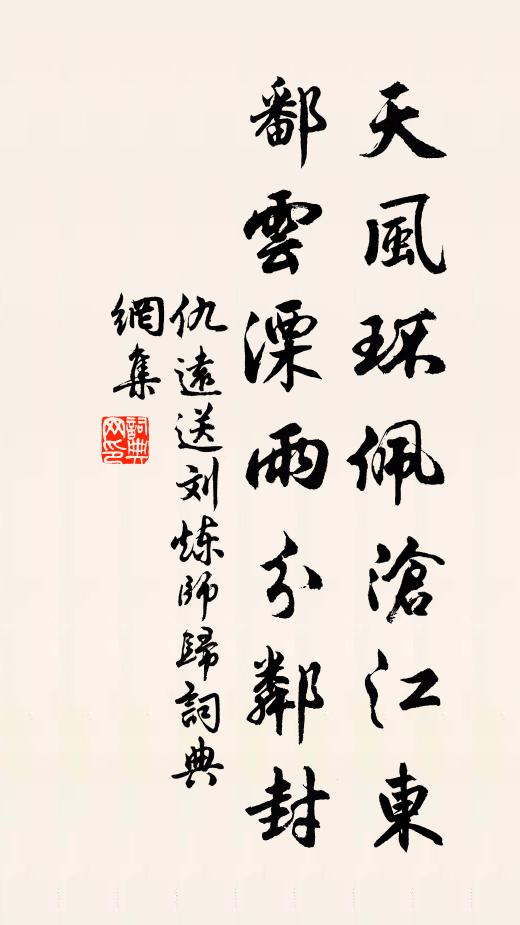 天風环佩滄江東
鄱雲溧雨分鄰封
仇遠送刘炼師歸詞典
網集
詞典
网印